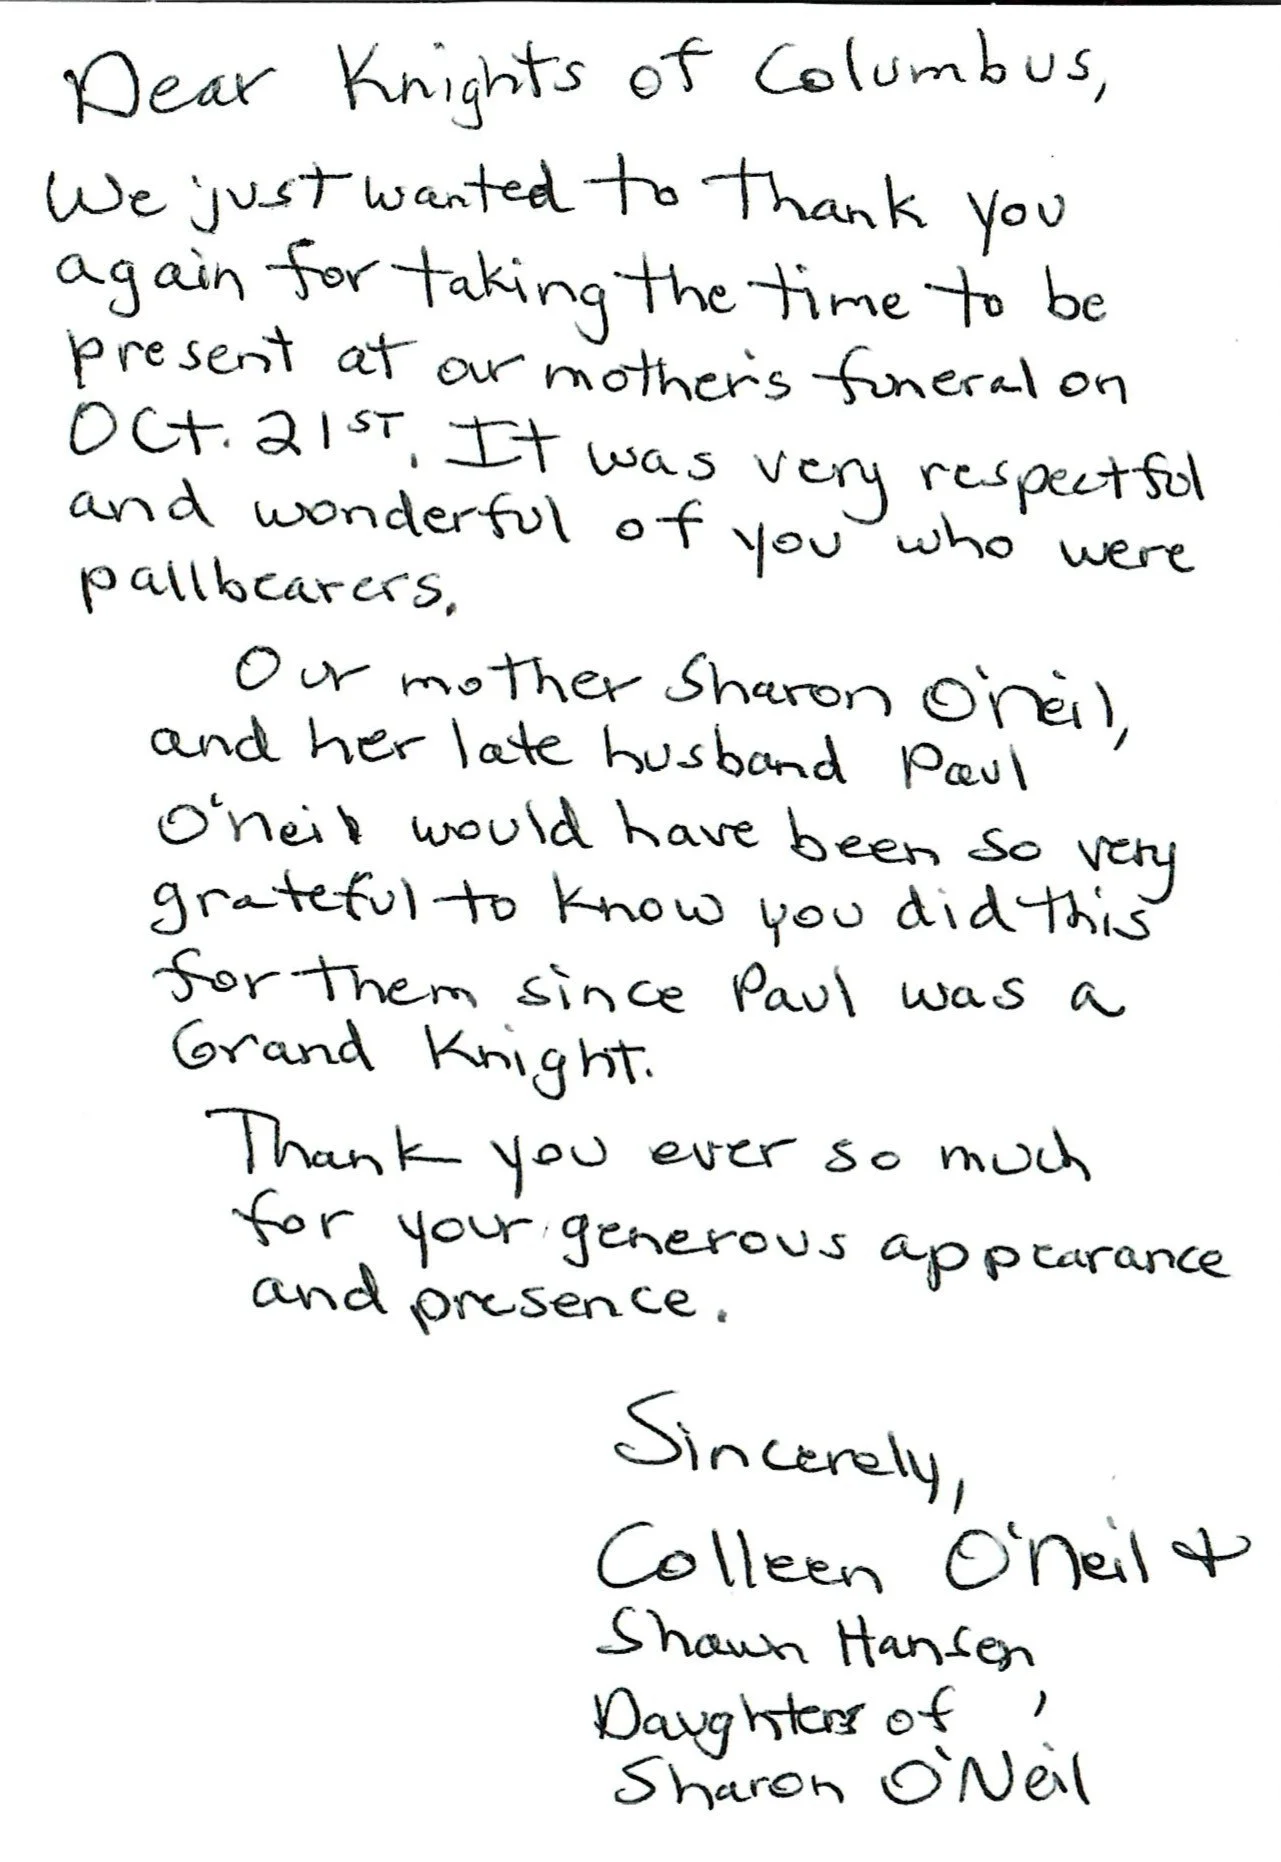 Dear Knights of Columbus,
We just wanted to thank you
again for taking the time to be
present at our mother's funeral on
Oct. 21ST. It was very respectful
and wonderful of you who were
pallbearers.
Our mother Sharon O'neil,
and her late husband Paul
O'neil would have been so very
grateful to know you did this
for them since Paul was a
Grand Knight.
Thank you ever so much
for your generous appearance
and presence.
Sincerely,
Colleen O'Neil &
Shawn Hansen,
Daughters of
Sharon O'Neil